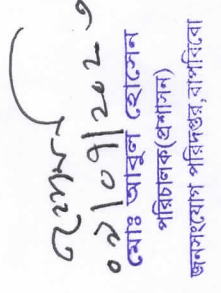 ০১/০৭/২০২১
মোঃ আবুল হোসেন
পরিচালক(প্রশাসন)
জনসংযোগ পরিদপ্তর,বাপবিবো